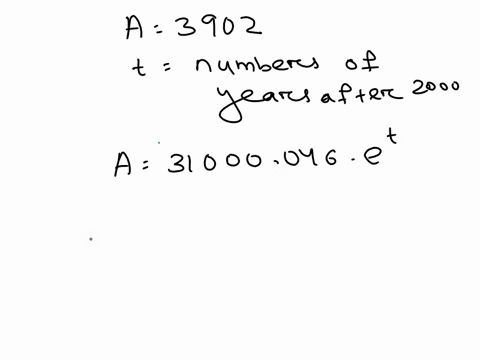 A = 3902
t = numbers of
years after 2000
A = 31000.046 . e^t